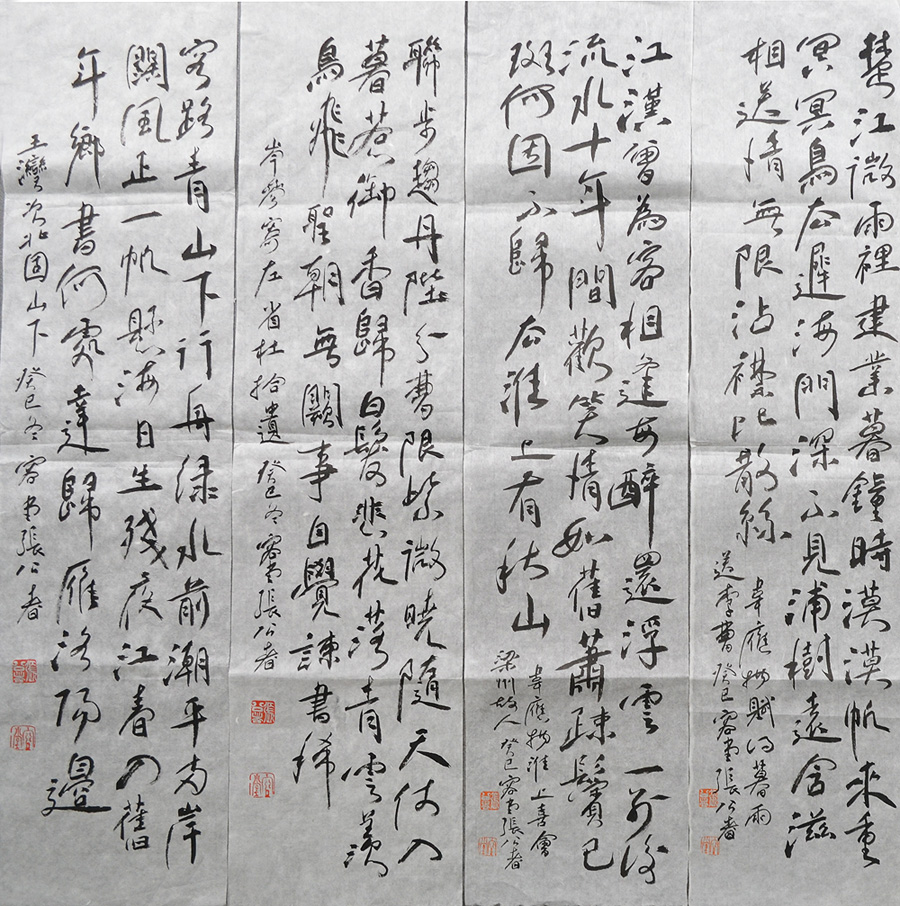 楚江微雨裡建業暮鐘時漠漠帆來重
冥冥鳥去遲海門深不見浦樹遠含滋
相送情無限沾襟比散絲
韋應物賦得暮雨
送李曹癸巳容堂張公者
江漢曾為客相逢每醉還浮雲一別後
流水十年間歡笑情如舊蕭疎鬢已
斑何因不歸去淮上有秋山
韋應物淮上喜會
梁州故人癸巳容堂張公者
聯步趨丹陛分曹限紫微曉隨天仗入
暮惹御香歸白髮悲花落青雲羨
鳥飛聖朝無闕事自覺諫書稀
岑參寄左省杜拾遺癸巳冬容堂張公者
客路青山下行舟綠水前潮平兩岸
闊風正一帆懸海日生殘夜江春入舊
年鄉書何處達歸雁洛陽邊
王灣次北固山下癸巳冬容堂張公者